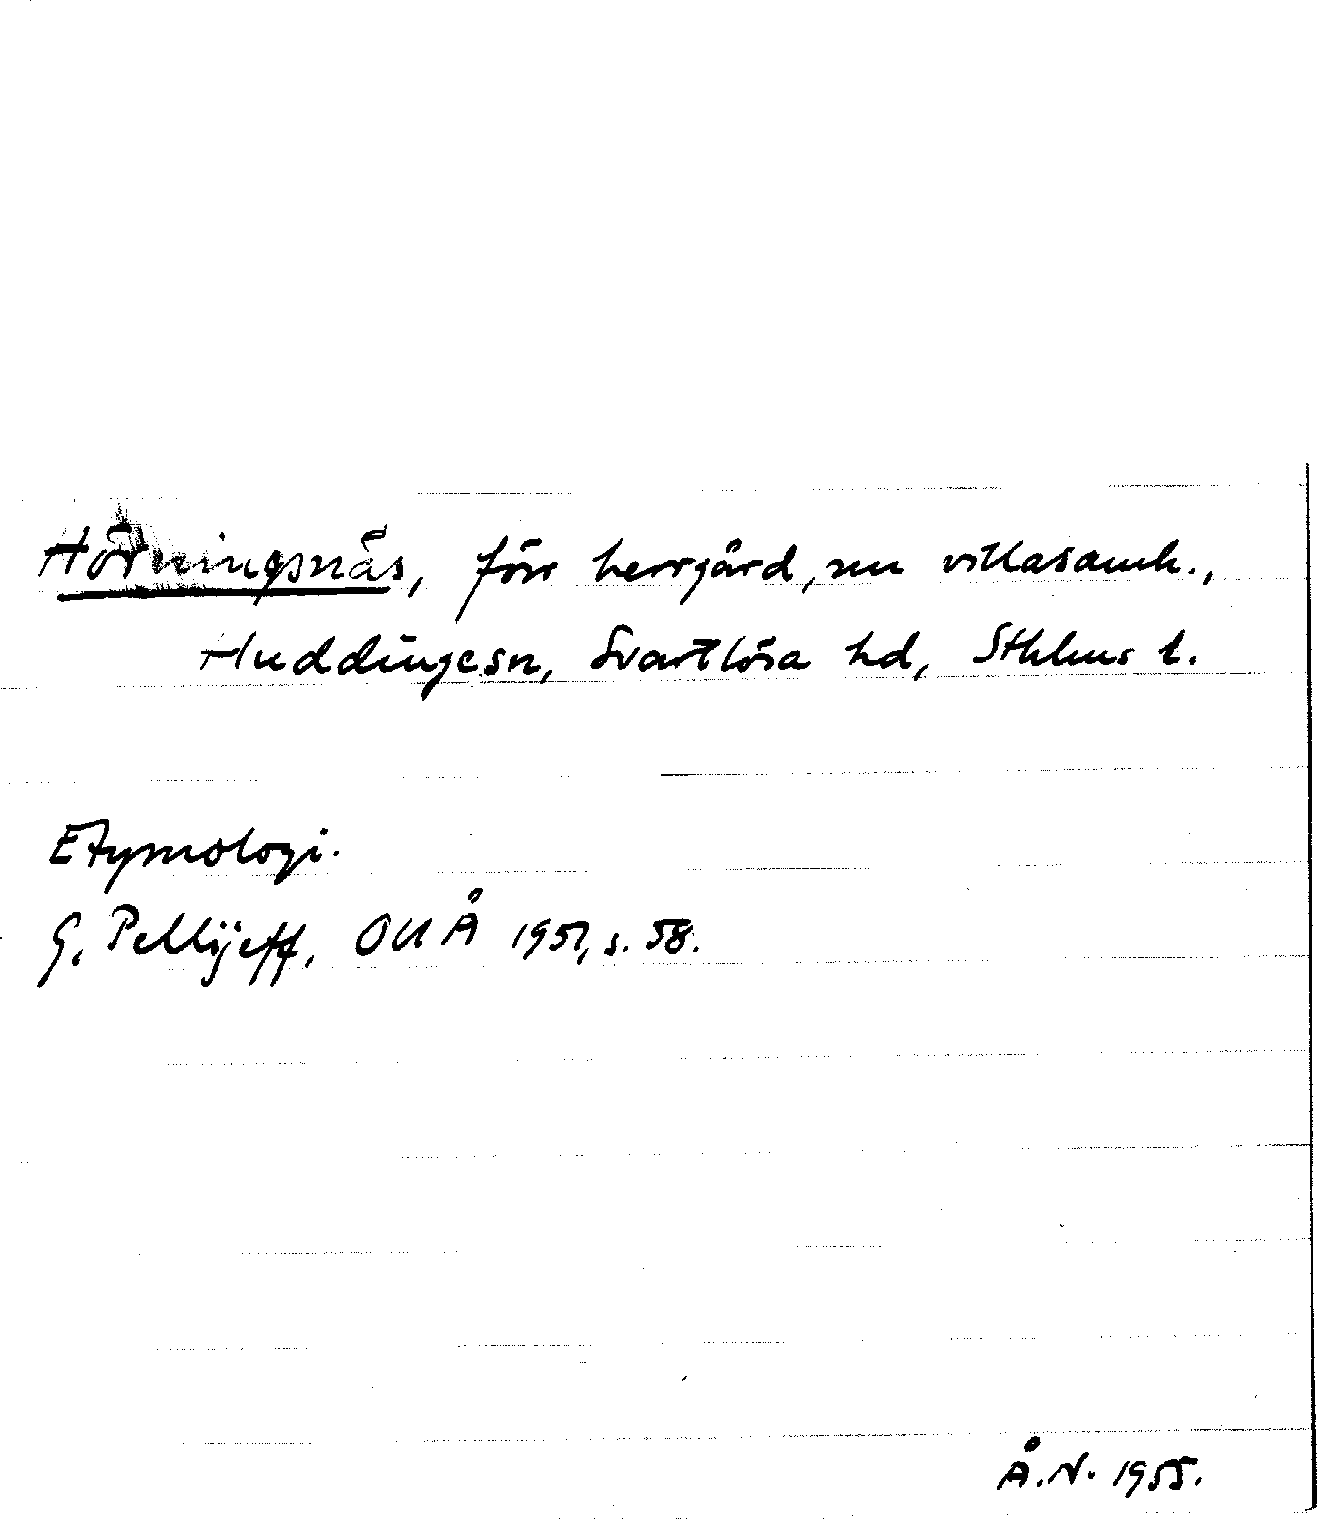 Hörningsnäs, förr herrgård, nu villasamh.,
Huddinge sn, Svartlösa hd, Sthlms l.
Etymologi.
G. Pellijeff, OUÅ 1951, s. 58.
Å.N. 1955.